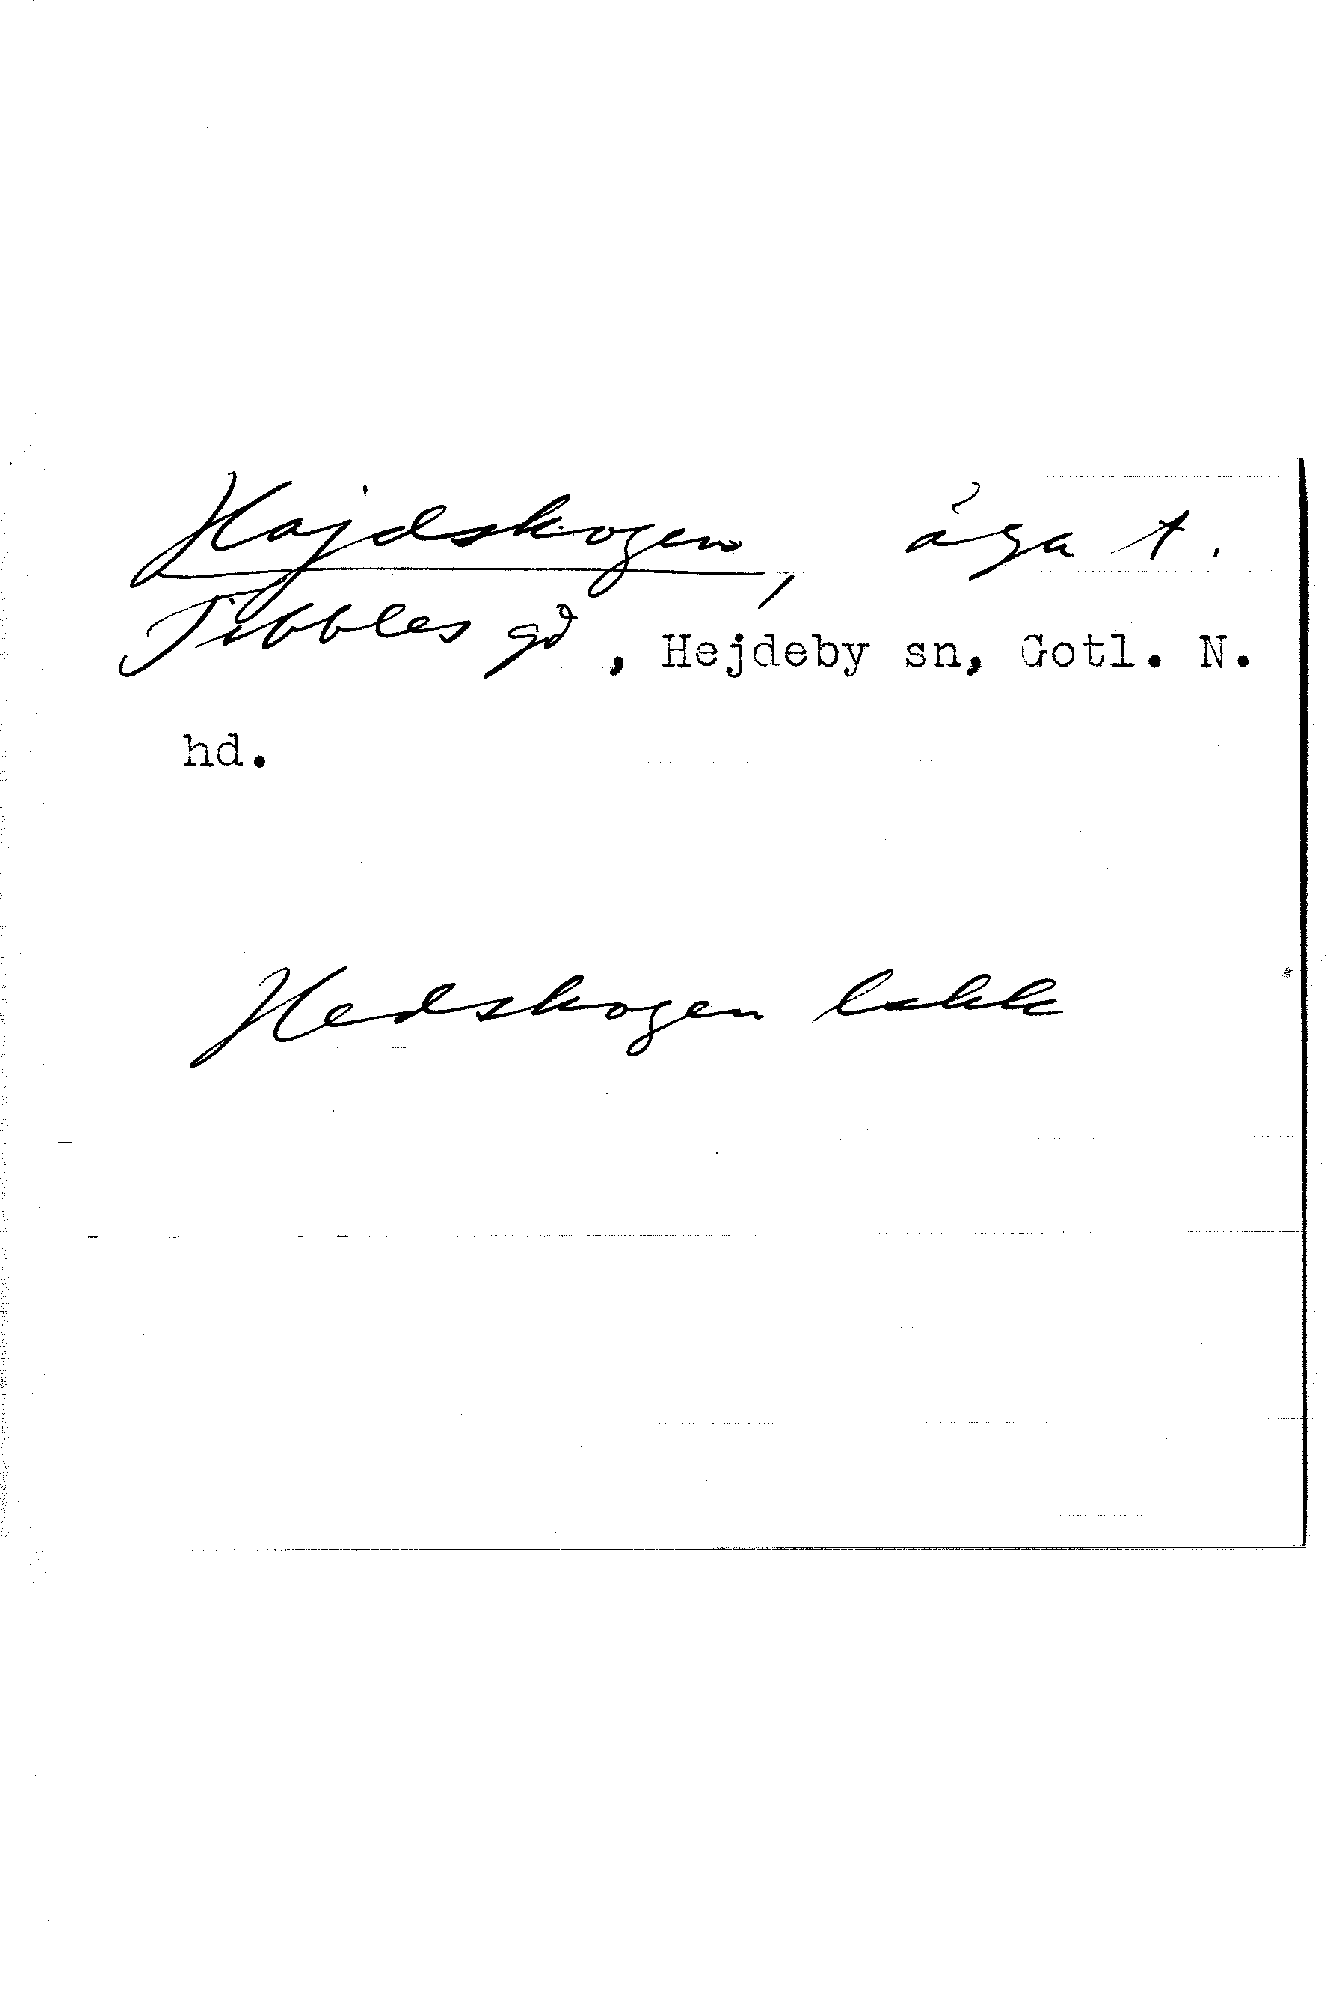 Hajdskogen, äga t.
Tibbles gd, Hejdeby sn, Gotl. N.
hd.
Hedskogen lekk